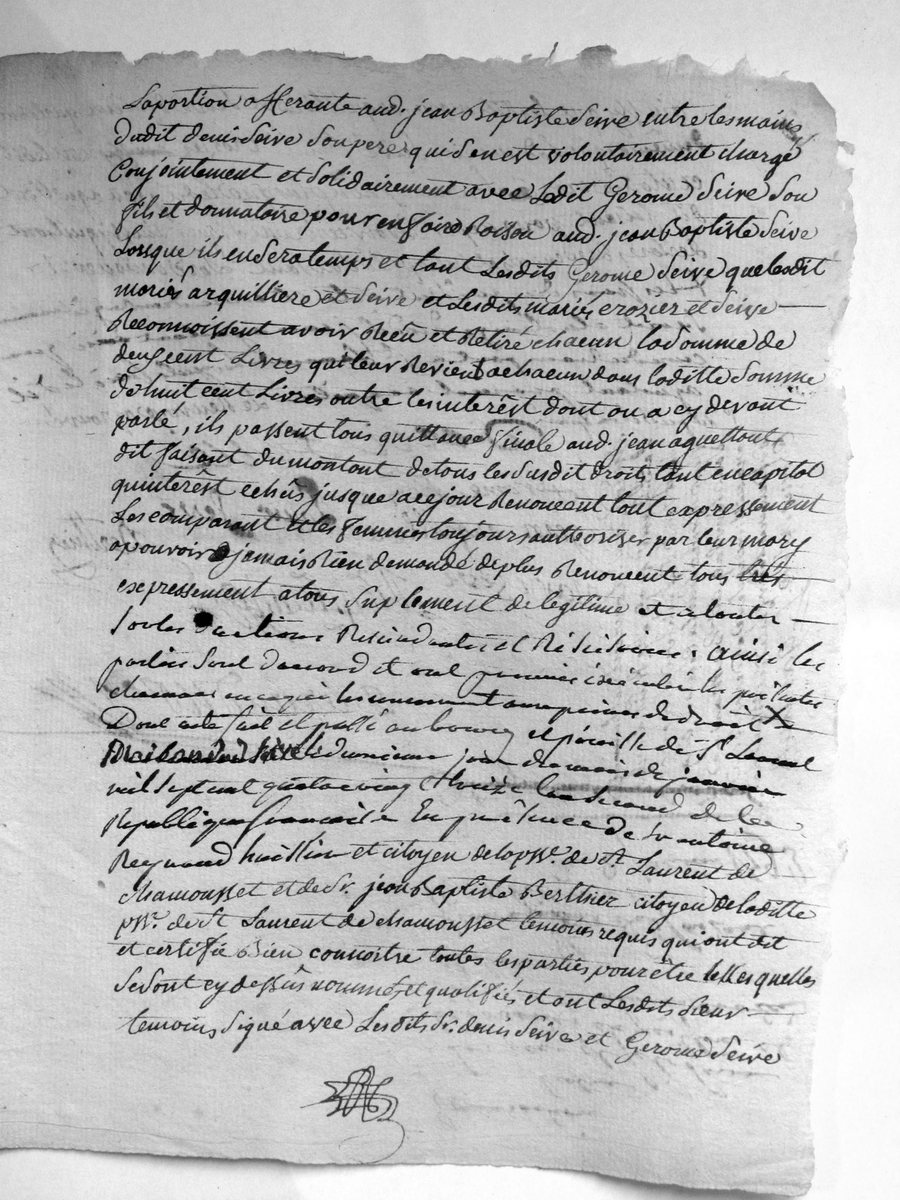 La portion afferante aud. jean Baptiste Seive entre les mains
dudit denis Seive Son pere qui s'en est volontairement chargé
Conjointement et Solidairement avec Ledit Gerome Seive Son
fils et donnatoire pour en faire Raison aud. jean Baptiste Seive
Lorsque il en Sera temps et tant Lesdits Gerome Seive que lesdit
mariés arquilliere et Seive et Lesdits mariés crozier et Seive
Reconnoissent avoir Recu et Retiré chacun la Somme de
deux cent Livres qui leur Revient a chacun dans laditte Somme
de huit cent Livres outre les interêst dont on a cy devant
parlé, ils passent tous quittance finale aud. jean aguettant
dit faisant du montant de tous les Susdit droits tant en capital
qu'interêst echûs jusque a ce jour Renoncent tout expressement
Les comparant et les femmes toujours authorisez par leur mary
a pouvoir jamais Rien demandé de plus Renoncent tous tres
expressement a tous Suplement de legitime et a toutes
Sortes d'actions Rescindantes et Résisoires : ainsi les
parties Sont d'accord et ont promis executer les présentes
chacunes en ce qui les concernent aux peines de droit
Dont acte fait et passé au bourg et paroisse de St Laurent
le dernier jour du mois de janvier
mil Sept cent quatre vingt treize de la
Republique francaise En présence de Sr antoine
Reynaud huissier et citoyen de la psse. de St. Laurent de
chamousset et de Sr. jean Baptiste Berthier citoyen de laditte
psse. de St Laurent de chamousset temoins requis qui ont dit
et certifié Bien connoitre toutes les parties pour être telles quelles
Se Sont cy dessus nommés et qualifiés et ont Lesdits Sieur
temoins Signé avec Lesdits Sr. denis Seive et Gerome Seive